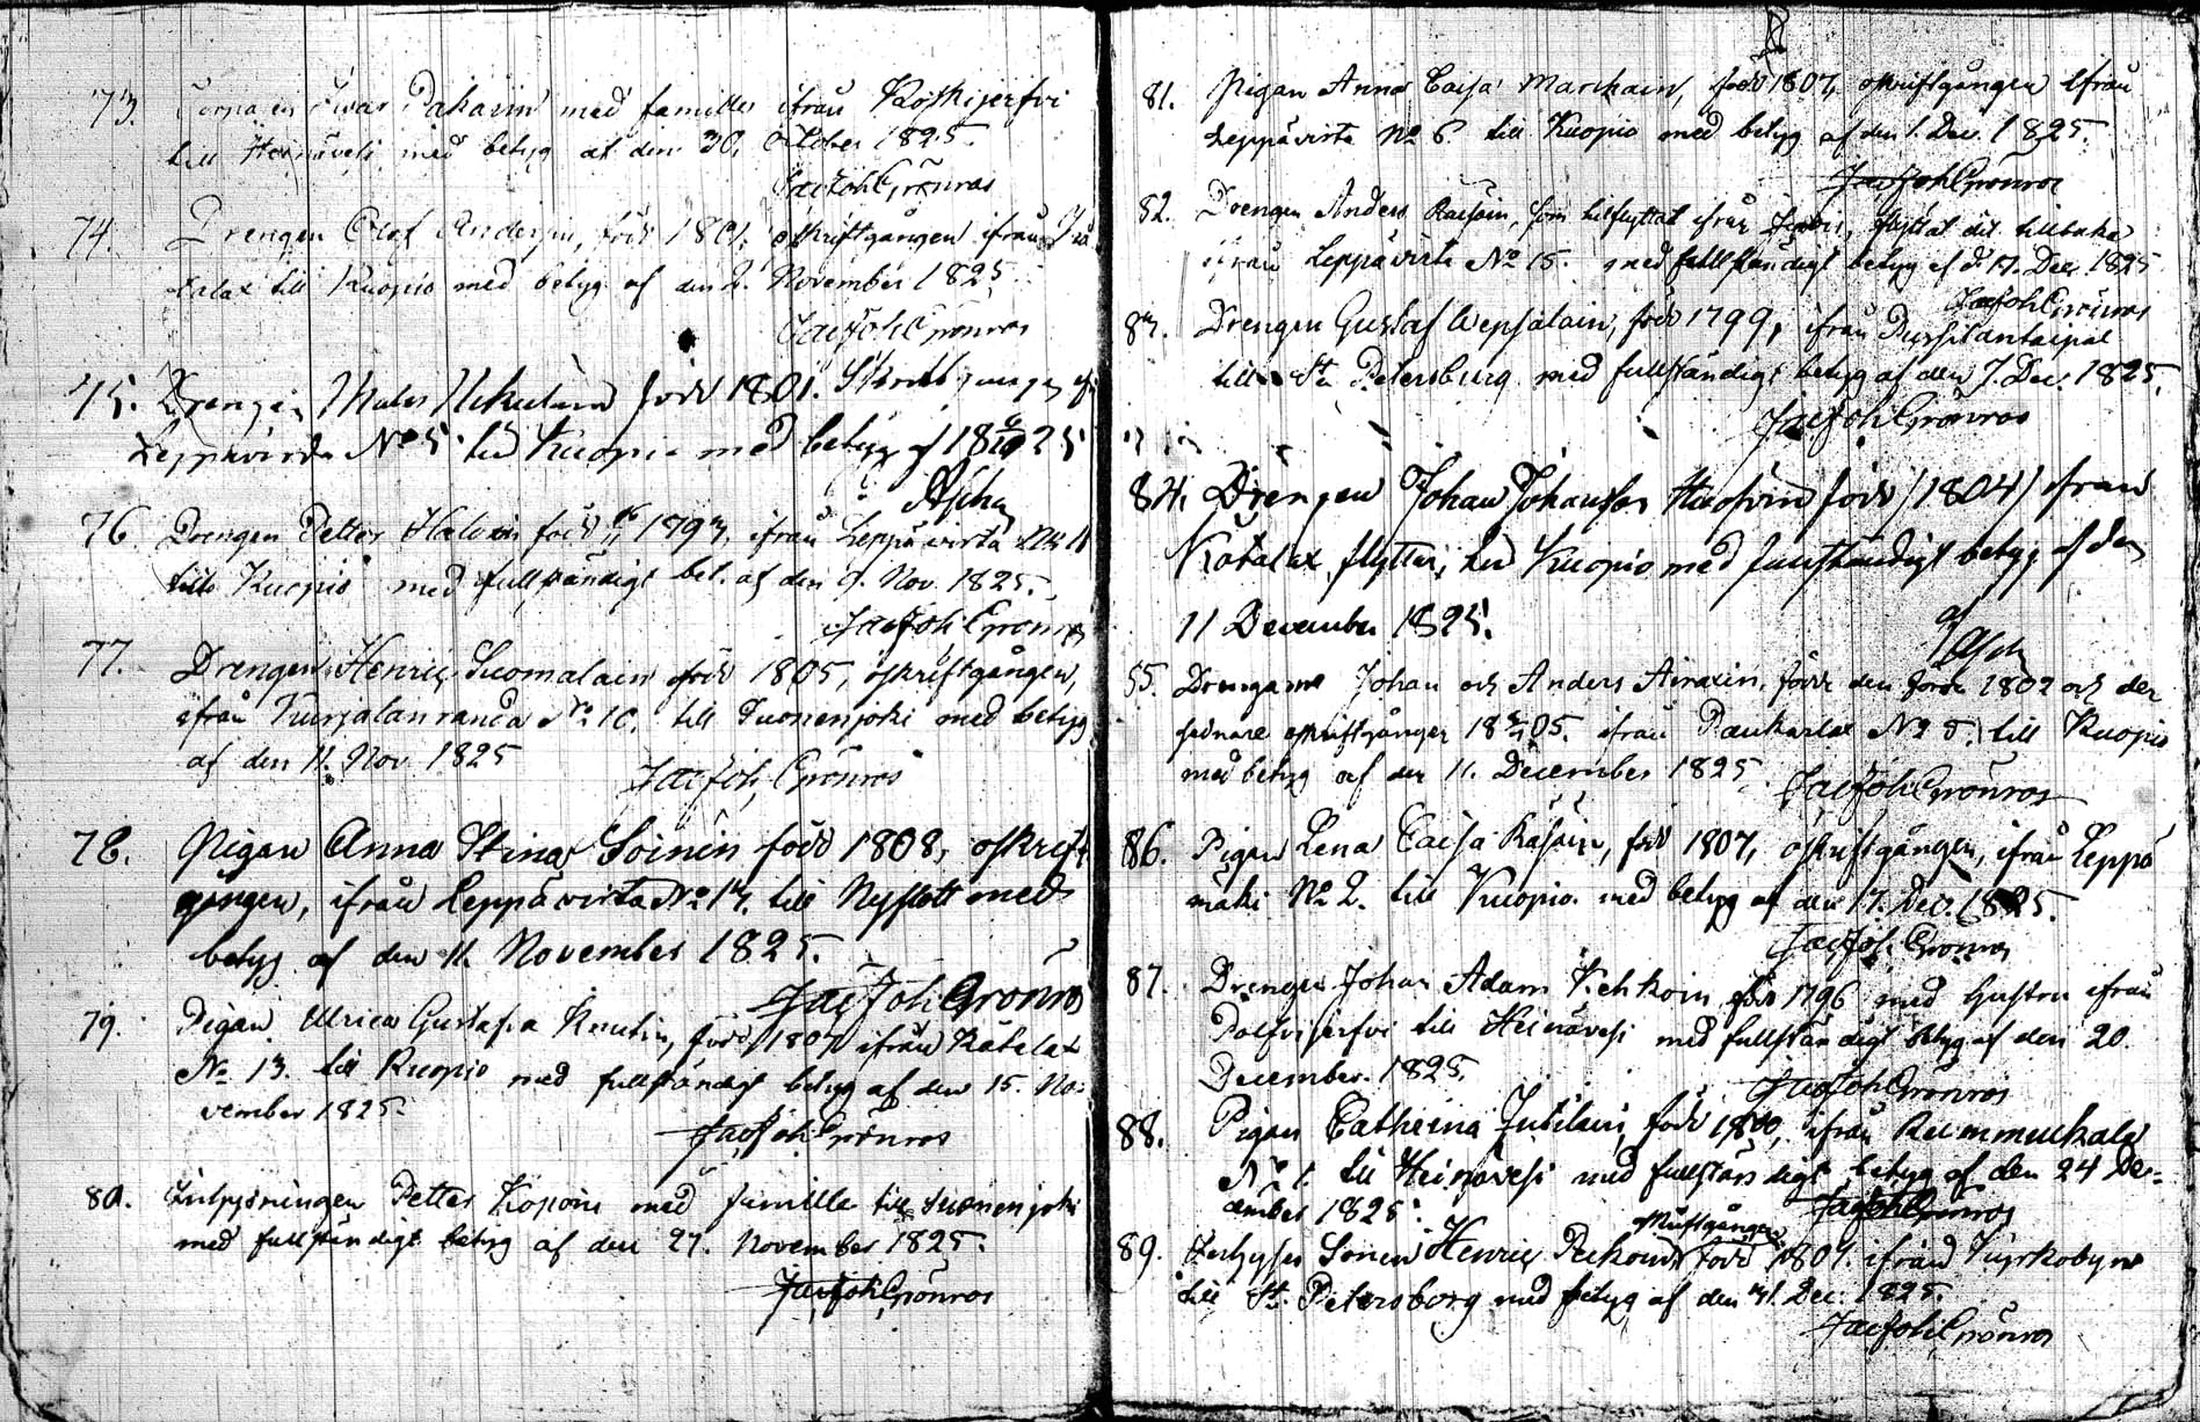 73. Ivar Pakarin med famille ifrån Koskijerfvi
till Heinävesi med betyg af den 30. October 1825.
Jac Joh Grönros
74. Drengen Olof Andersin, född 1801, oskriftgången ifrån
talax till Kuopio med betyg af den 2. November 1825.
Jac Joh Grönros
75. Drengen född 1801.
Leppävirda No 5 till Kuopio med betyg af 25
Asch
76 Drengen Petter född 1793, ifrån Leppävirta
till Kuopio med fullständigt bet. af den 9. Nov. 1825.
Jac Joh Grönros
77. Drengen Henric Suomalain född 1805, oskriftgången,
ifrån Kurjalanranda No 10. till Suonenjoki med betyg
af den 11. Nov 1825
Jac Joh Grönros
78. Pigan Anna Stina Soinin född 1808, oskrift
gången, ifrån Leppävirta No 13. till Nyslott med
betyg af den 11. November 1825.
Jac Joh Grönros
79. Pigan Ulrica Gustafva Knutin, född 1807 ifrån Kotalax
No 13. till Kuopio med fullständigt betyg af den 15. No-
vember 1825.
Jac Joh Grönros
80. Inhysningen Petter Kopoin med famille till Suonenjoki
med fullständigt betyg af den 27. November 1825.
Jac Joh Grönros
81. Pigan Anna Caisa Marckain, född 1807, oskriftgången ifrån
Leppävirta No 6. till Kuopio med betyg af den 1. Dec. 1825.
Jac Joh Grönros
82. Drengen Anders Räisäin, som tilflyttat ifrån flyttat dit tillbaka
ifrån Leppävirta No 15. med fullständigt betyg af d. 17. Dec. 1825
Jac Joh Grönros
83. Drengen Gustaf Wepsäläin, född 1799, ifrån
till St. Petersburg med fullständigt betyg af den 7. Dec. 1825.
Jac Joh Grönros
84. Drengen Johan Johansson född /1804/ ifrån
Kotalax flyttar till Kuopio med fullständigt betyg af den
11 December 1825.
Asch
55. Drengarne Johan och Anders Airaxin, födde den förre 1802 och den
sednare oskriftgången 1805. ifrån Paukarlax No 5. till Kuopio
med betyg af den 11. December 1825
Jac Joh Grönros
86. Pigan Lena Caisa Räisäin, född 1807, oskriftgången, ifrån Leppä
mäki No 2. till Kuopio med betyg af den 17. Dec. 1825.
Jac Joh Grönros
87. Drengen Johan Adam Kehkoin född 1796 med hustru ifrån
Polfvijerfvi till Heinävesi med fullständigt betyg af den 20.
December 1825.
Jac Joh Grönros
88. Pigan Catharina Jutilain, född 1800, ifrån Rummukala
No 1. till Heinävesi med fullständigt betyg af den 24 De-
cember 1825.
Jac Joh Grönros
oskriftgången
89. Inhyses Sonen Henric Peckoin född 1807. ifrån Kurkobyn
till St. Petersborg med betyg af den 31. Dec. 1825.
Jac Joh Grönros